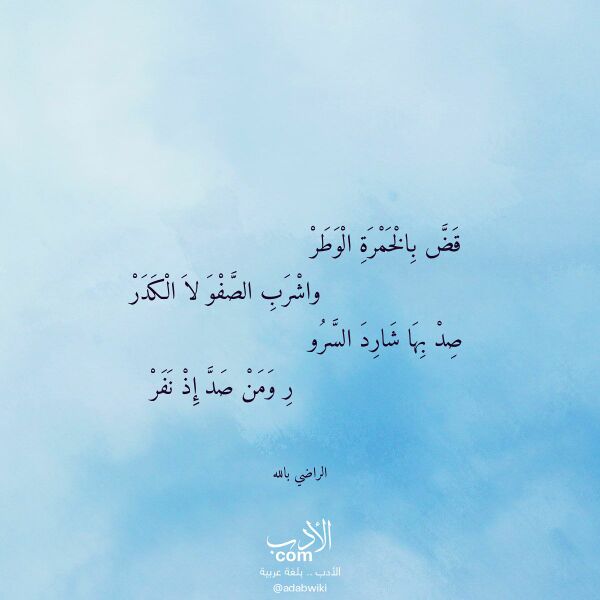 قَضَّ بِالْخَمْرَةِ الْوَطَرْ
واشْرَبِ الصَّفْوَ لاَ الْكَدَرْ
صِدْ بِهَا شَارِدَ السَّرُو
رِ وَمَنْ صَدَّ إِذْ نَفَرْ
الراضي بالله
الأدب
com
الأدب .. بلغة عربية
@adabwiki